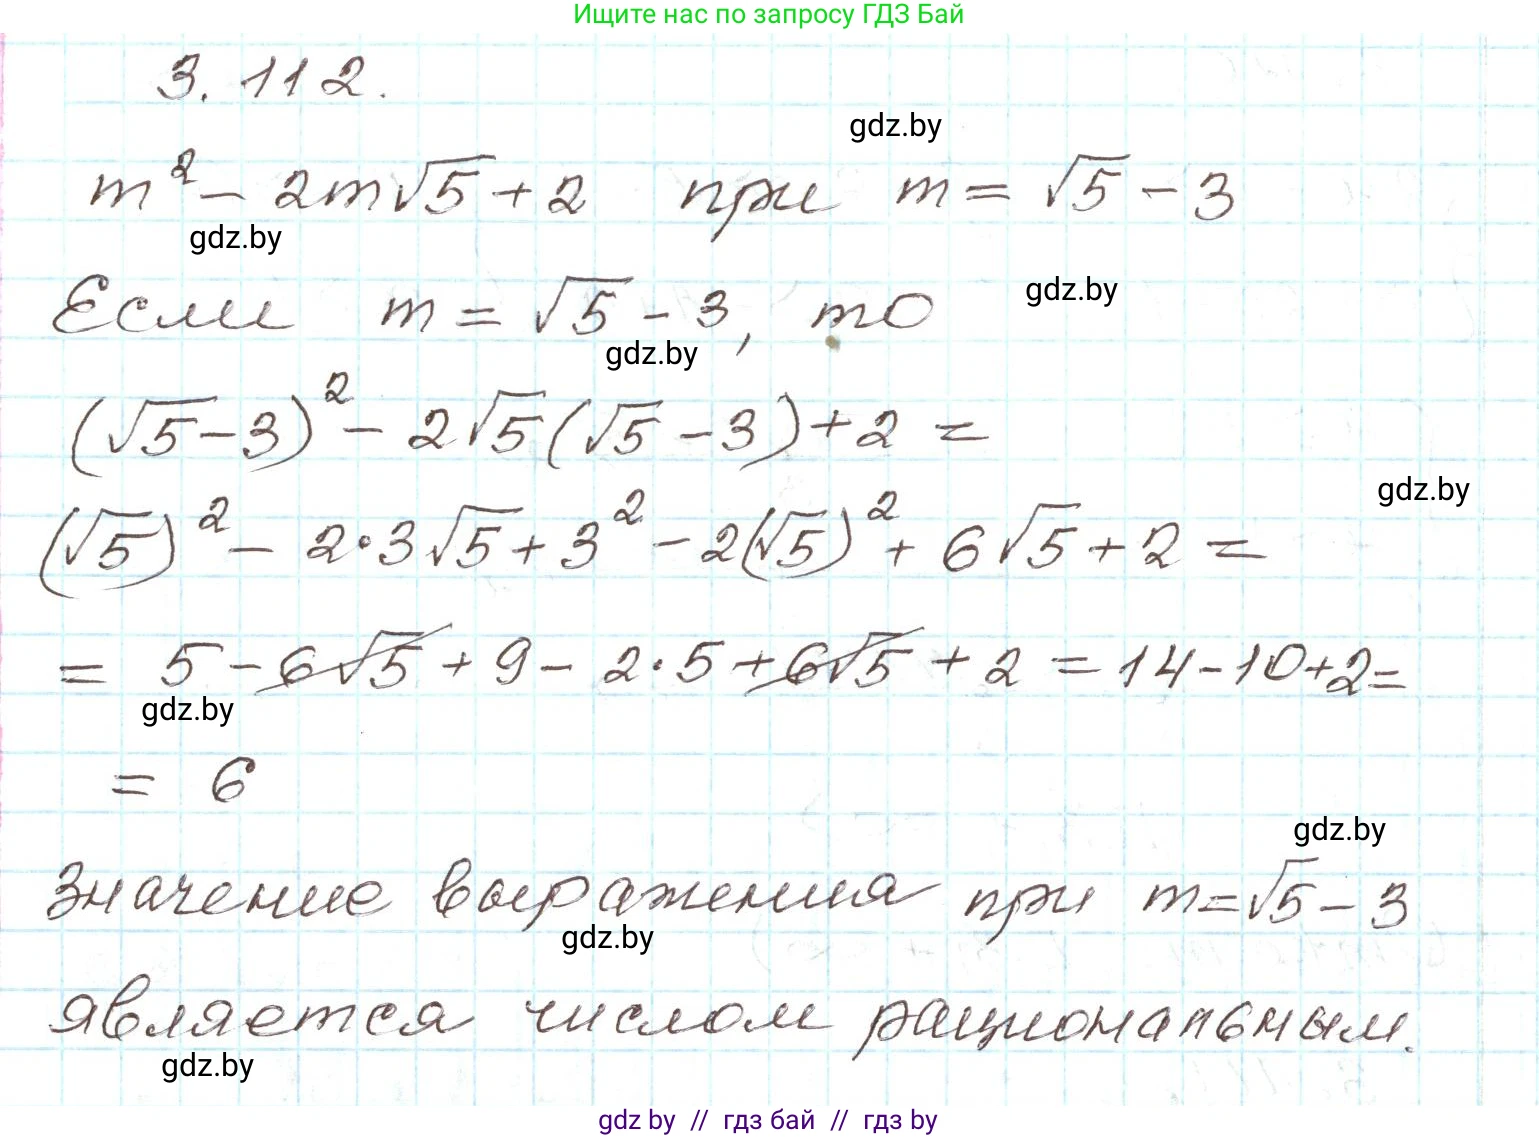 Ищите нас по запросу ГДЗ Бай
3.112.
gdz.by
m² - 2m√5 + 2 при m = √5 - 3
gdz.by
Если m = √5 - 3, то
gdz.by
gdz.by
(√5 - 3)² - 2√5(√5 - 3) + 2 =
gdz.by
(√5)² - 2·3√5 + 3² - 2(√5)² + 6√5 + 2 =
= 5 - 6√5 + 9 - 2·5 + 6√5 + 2 = 14 - 10 + 2 =
gdz.by
= 6
gdz.by
Значение выражения при m = √5 - 3
gdz.by
является числом рациональным.
gdz.by
gdz by // гдз бай // гдз by